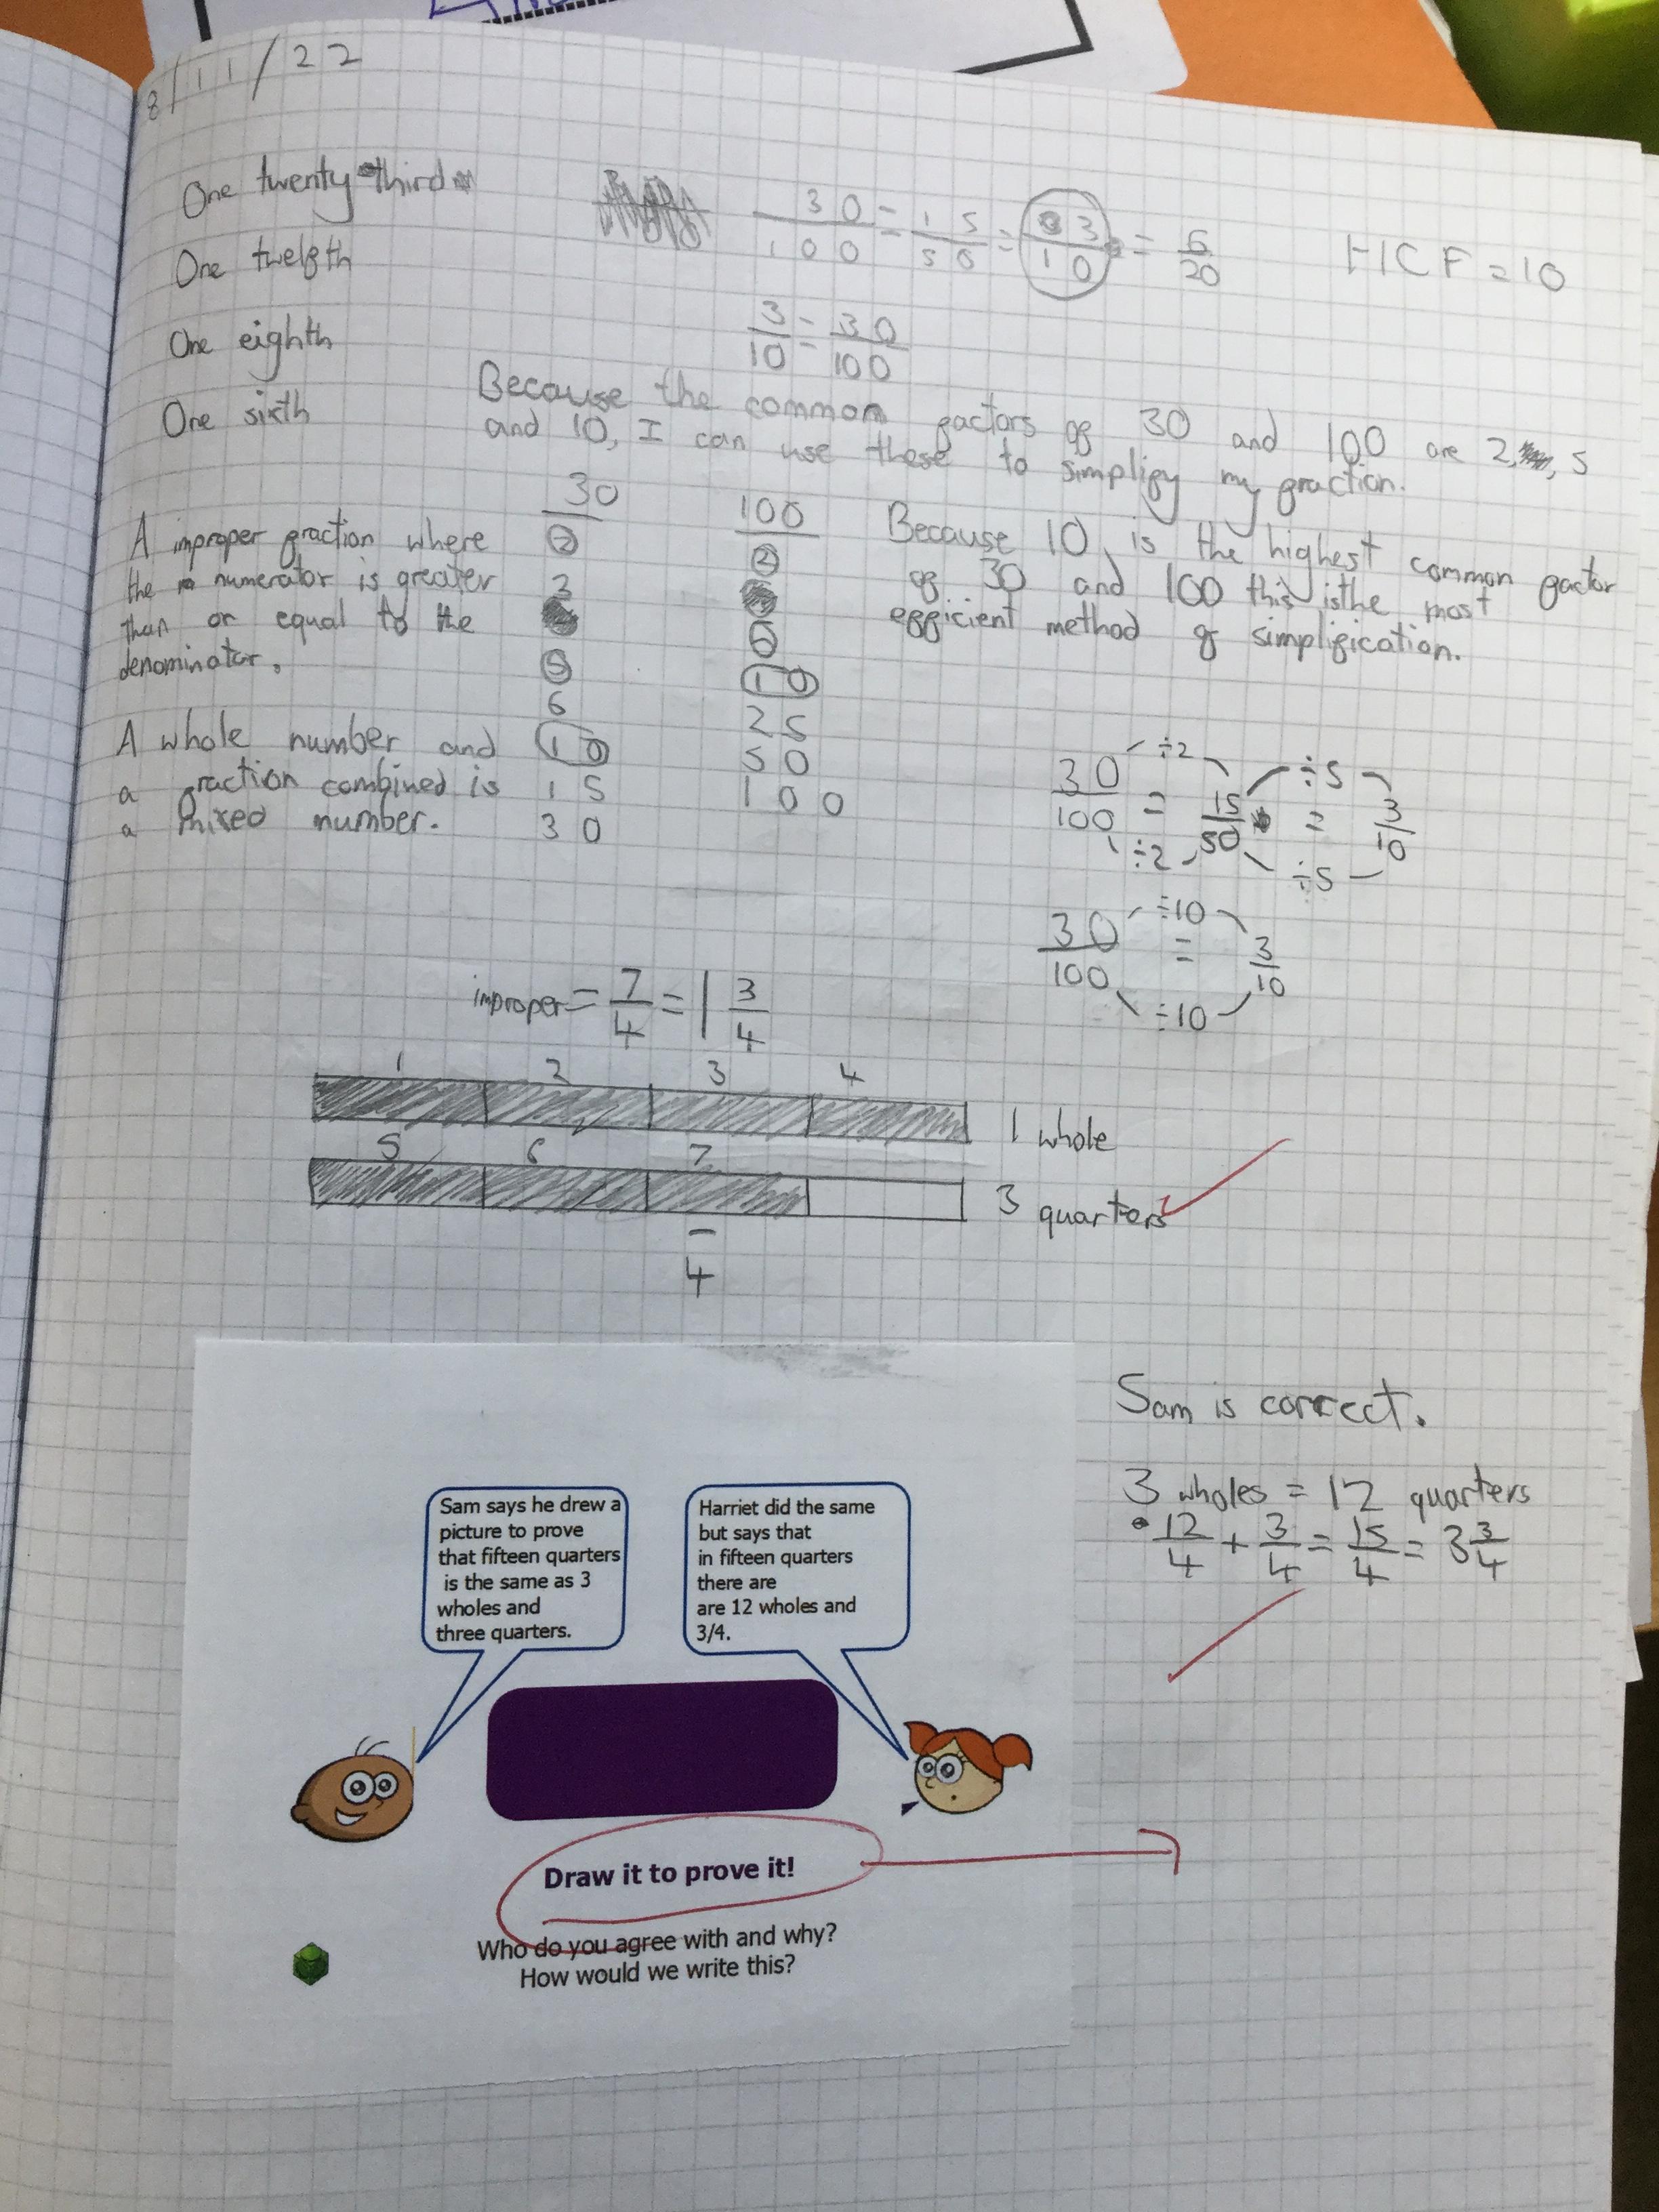 8/11/22
One twenty third
One twelfth
One eighth
One sixth
30/100 = 15/50 = 3/10 = 6/20
HCF = 10
3/10 = 30/100
Because the common factors of 30 and 100 are 2, 5
and 10, I can use these to simplify my fraction.
A improper fraction where
the numerator is greater
than or equal to the
denominator.
A whole number and
a fraction combined is
a mixed number.
30
2
3
5
6
10
15
30
100
2
5
10
25
50
100
Because 10 is the highest common factor
of 30 and 100 this is the most
efficient method of simplification.
÷2 ÷5
30/100 = 15/50 = 3/10
÷2 ÷5
÷10
30/100 = 3/10
÷10
improper = 7/4 = 1 3/4
1 2 3 4
1 whole
5 6 7
3 quarters
4
Sam says he drew a
picture to prove
that fifteen quarters
is the same as 3
wholes and
three quarters.
Harriet did the same
but says that
in fifteen quarters
there are
are 12 wholes and
3/4.
Draw it to prove it!
Who do you agree with and why?
How would we write this?
Sam is correct.
3 wholes = 12 quarters
12/4 + 3/4 = 15/4 = 3 3/4